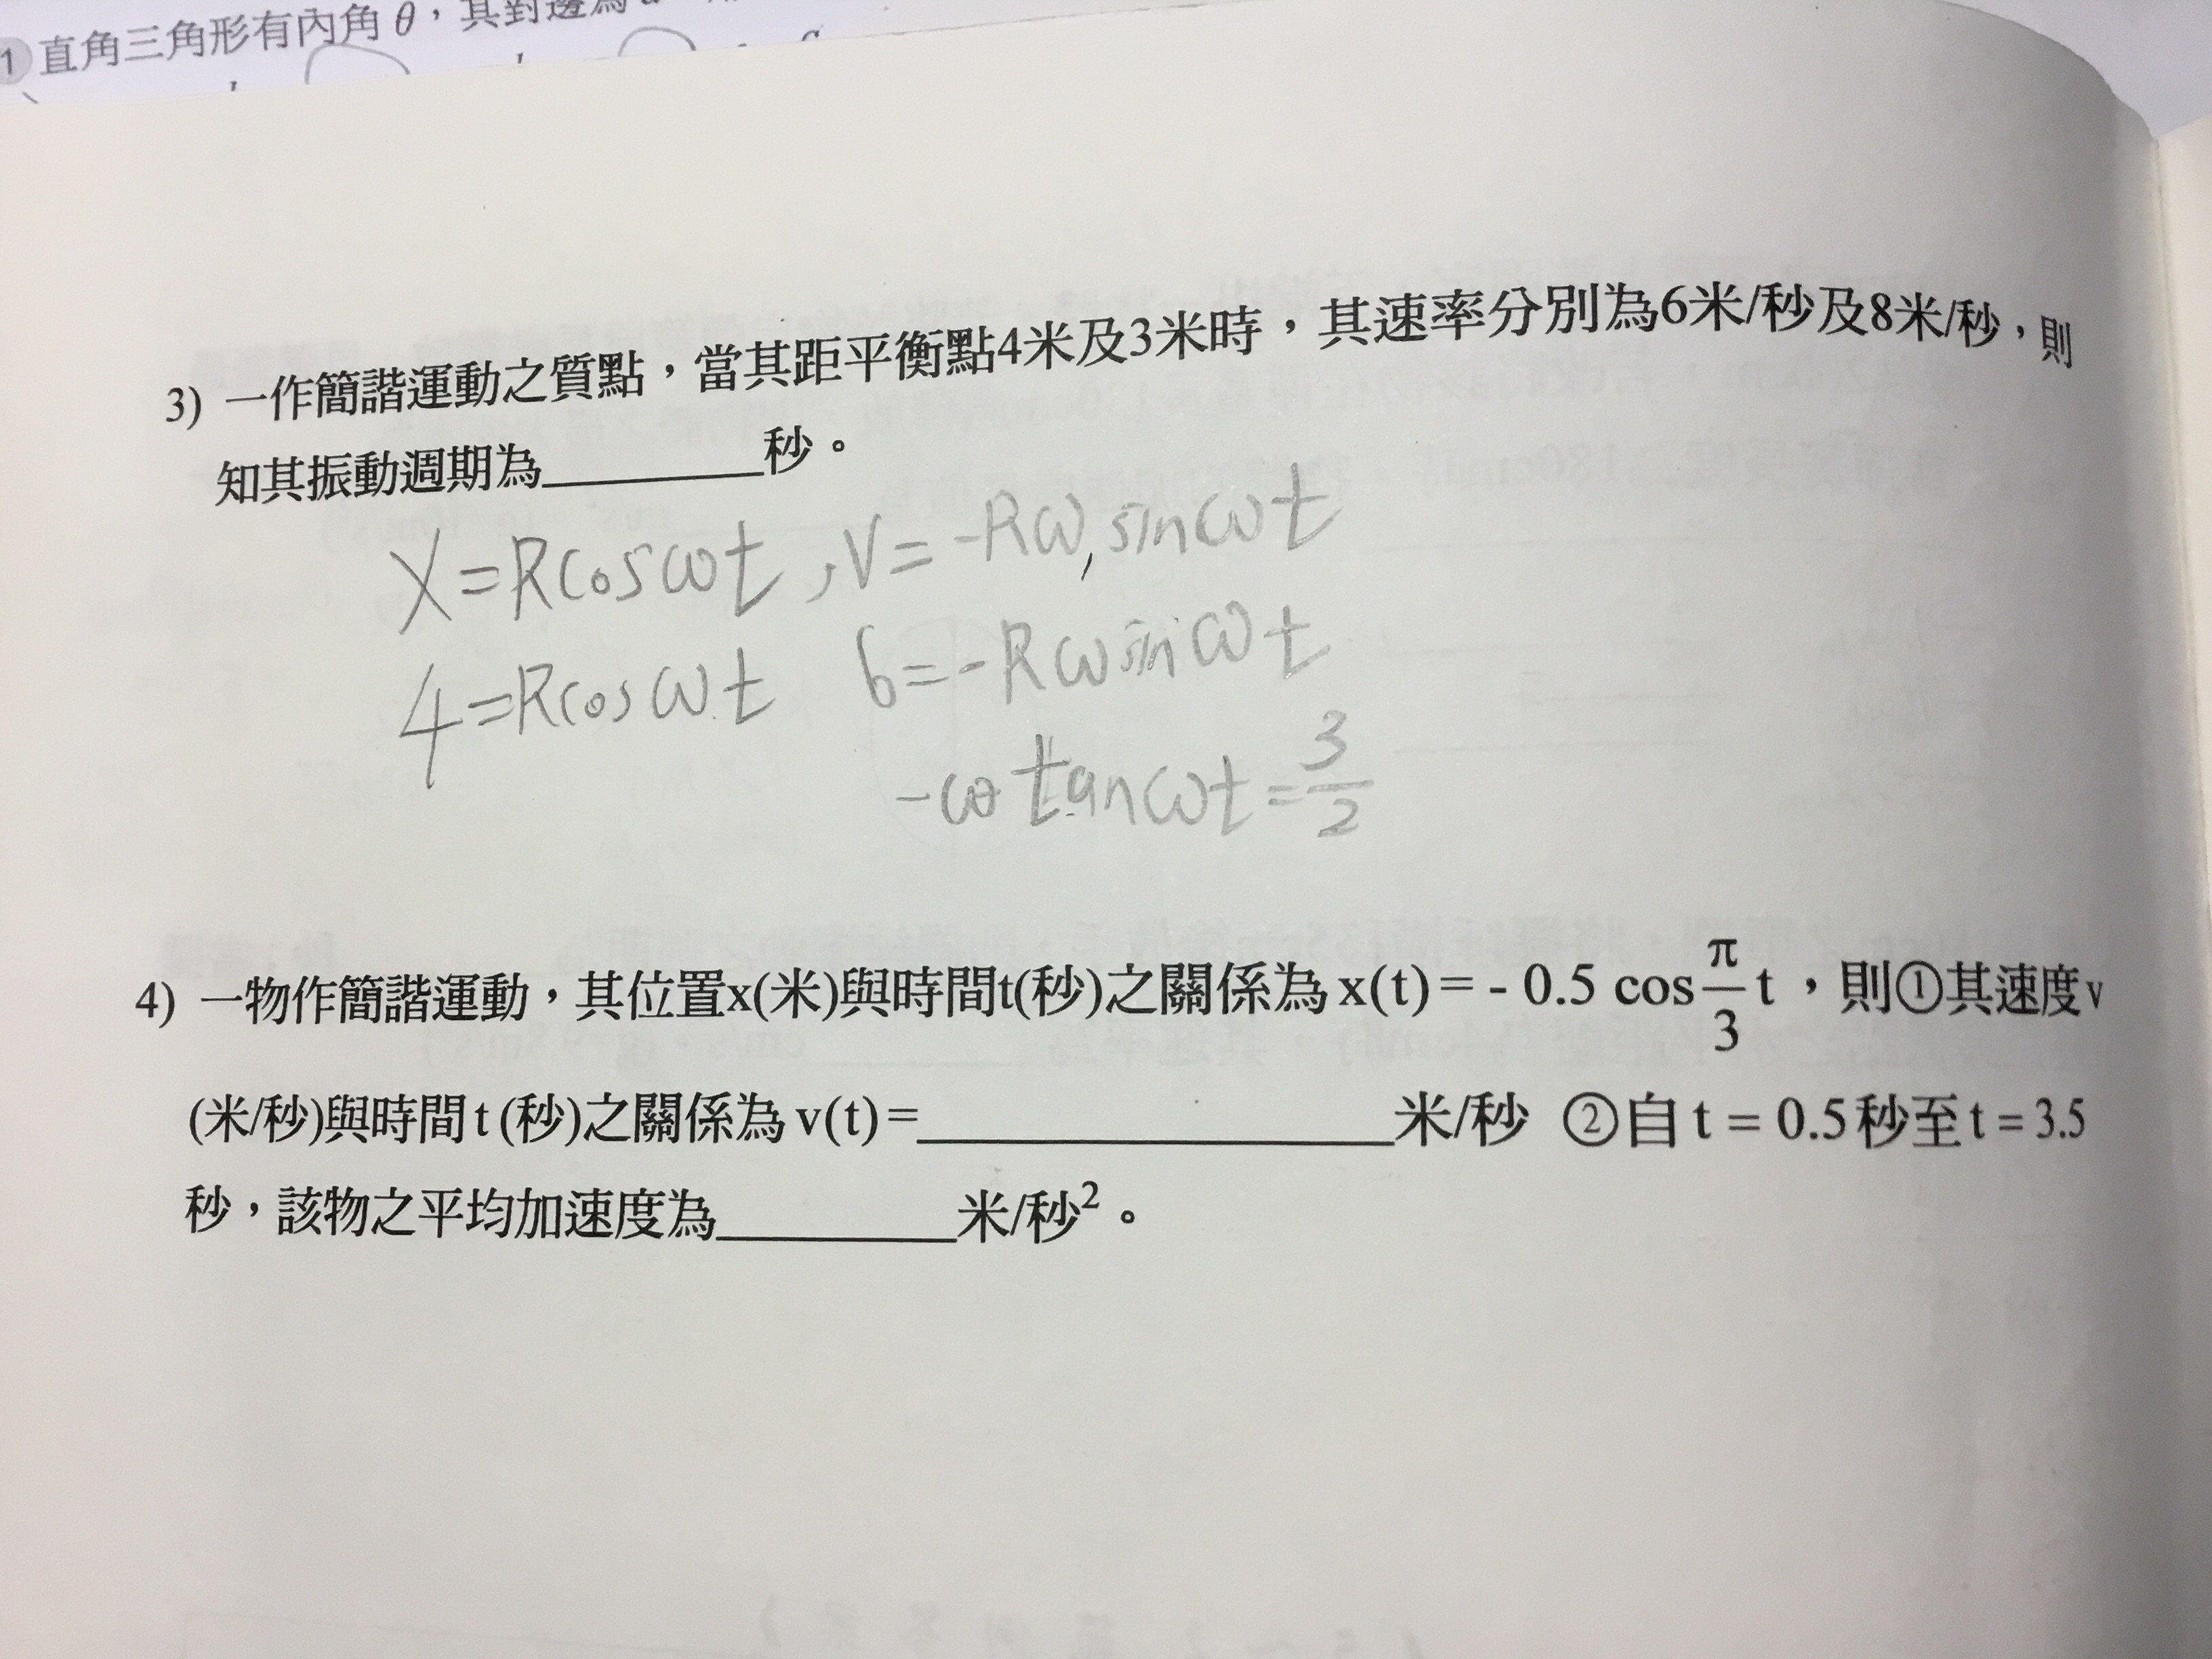 1 直角三角形有內角 θ，其對邊為
3) 一作簡諧運動之質點，當其距平衡點4米及3米時，其速率分別為6米/秒及8米/秒，則
知其振動週期為________秒。
X=Rcosωt , V=-Rω sinωt
4=Rcosωt 6=-Rω sinωt
-ω tanωt=3/2
4) 一物作簡諧運動，其位置x(米)與時間t(秒)之關係為 x(t) = - 0.5 cos π/3 t ，則①其速度v
(米/秒)與時間 t (秒)之關係為 v(t) =________________米/秒 ②自 t = 0.5 秒至 t = 3.5
秒，該物之平均加速度為________米/秒²。